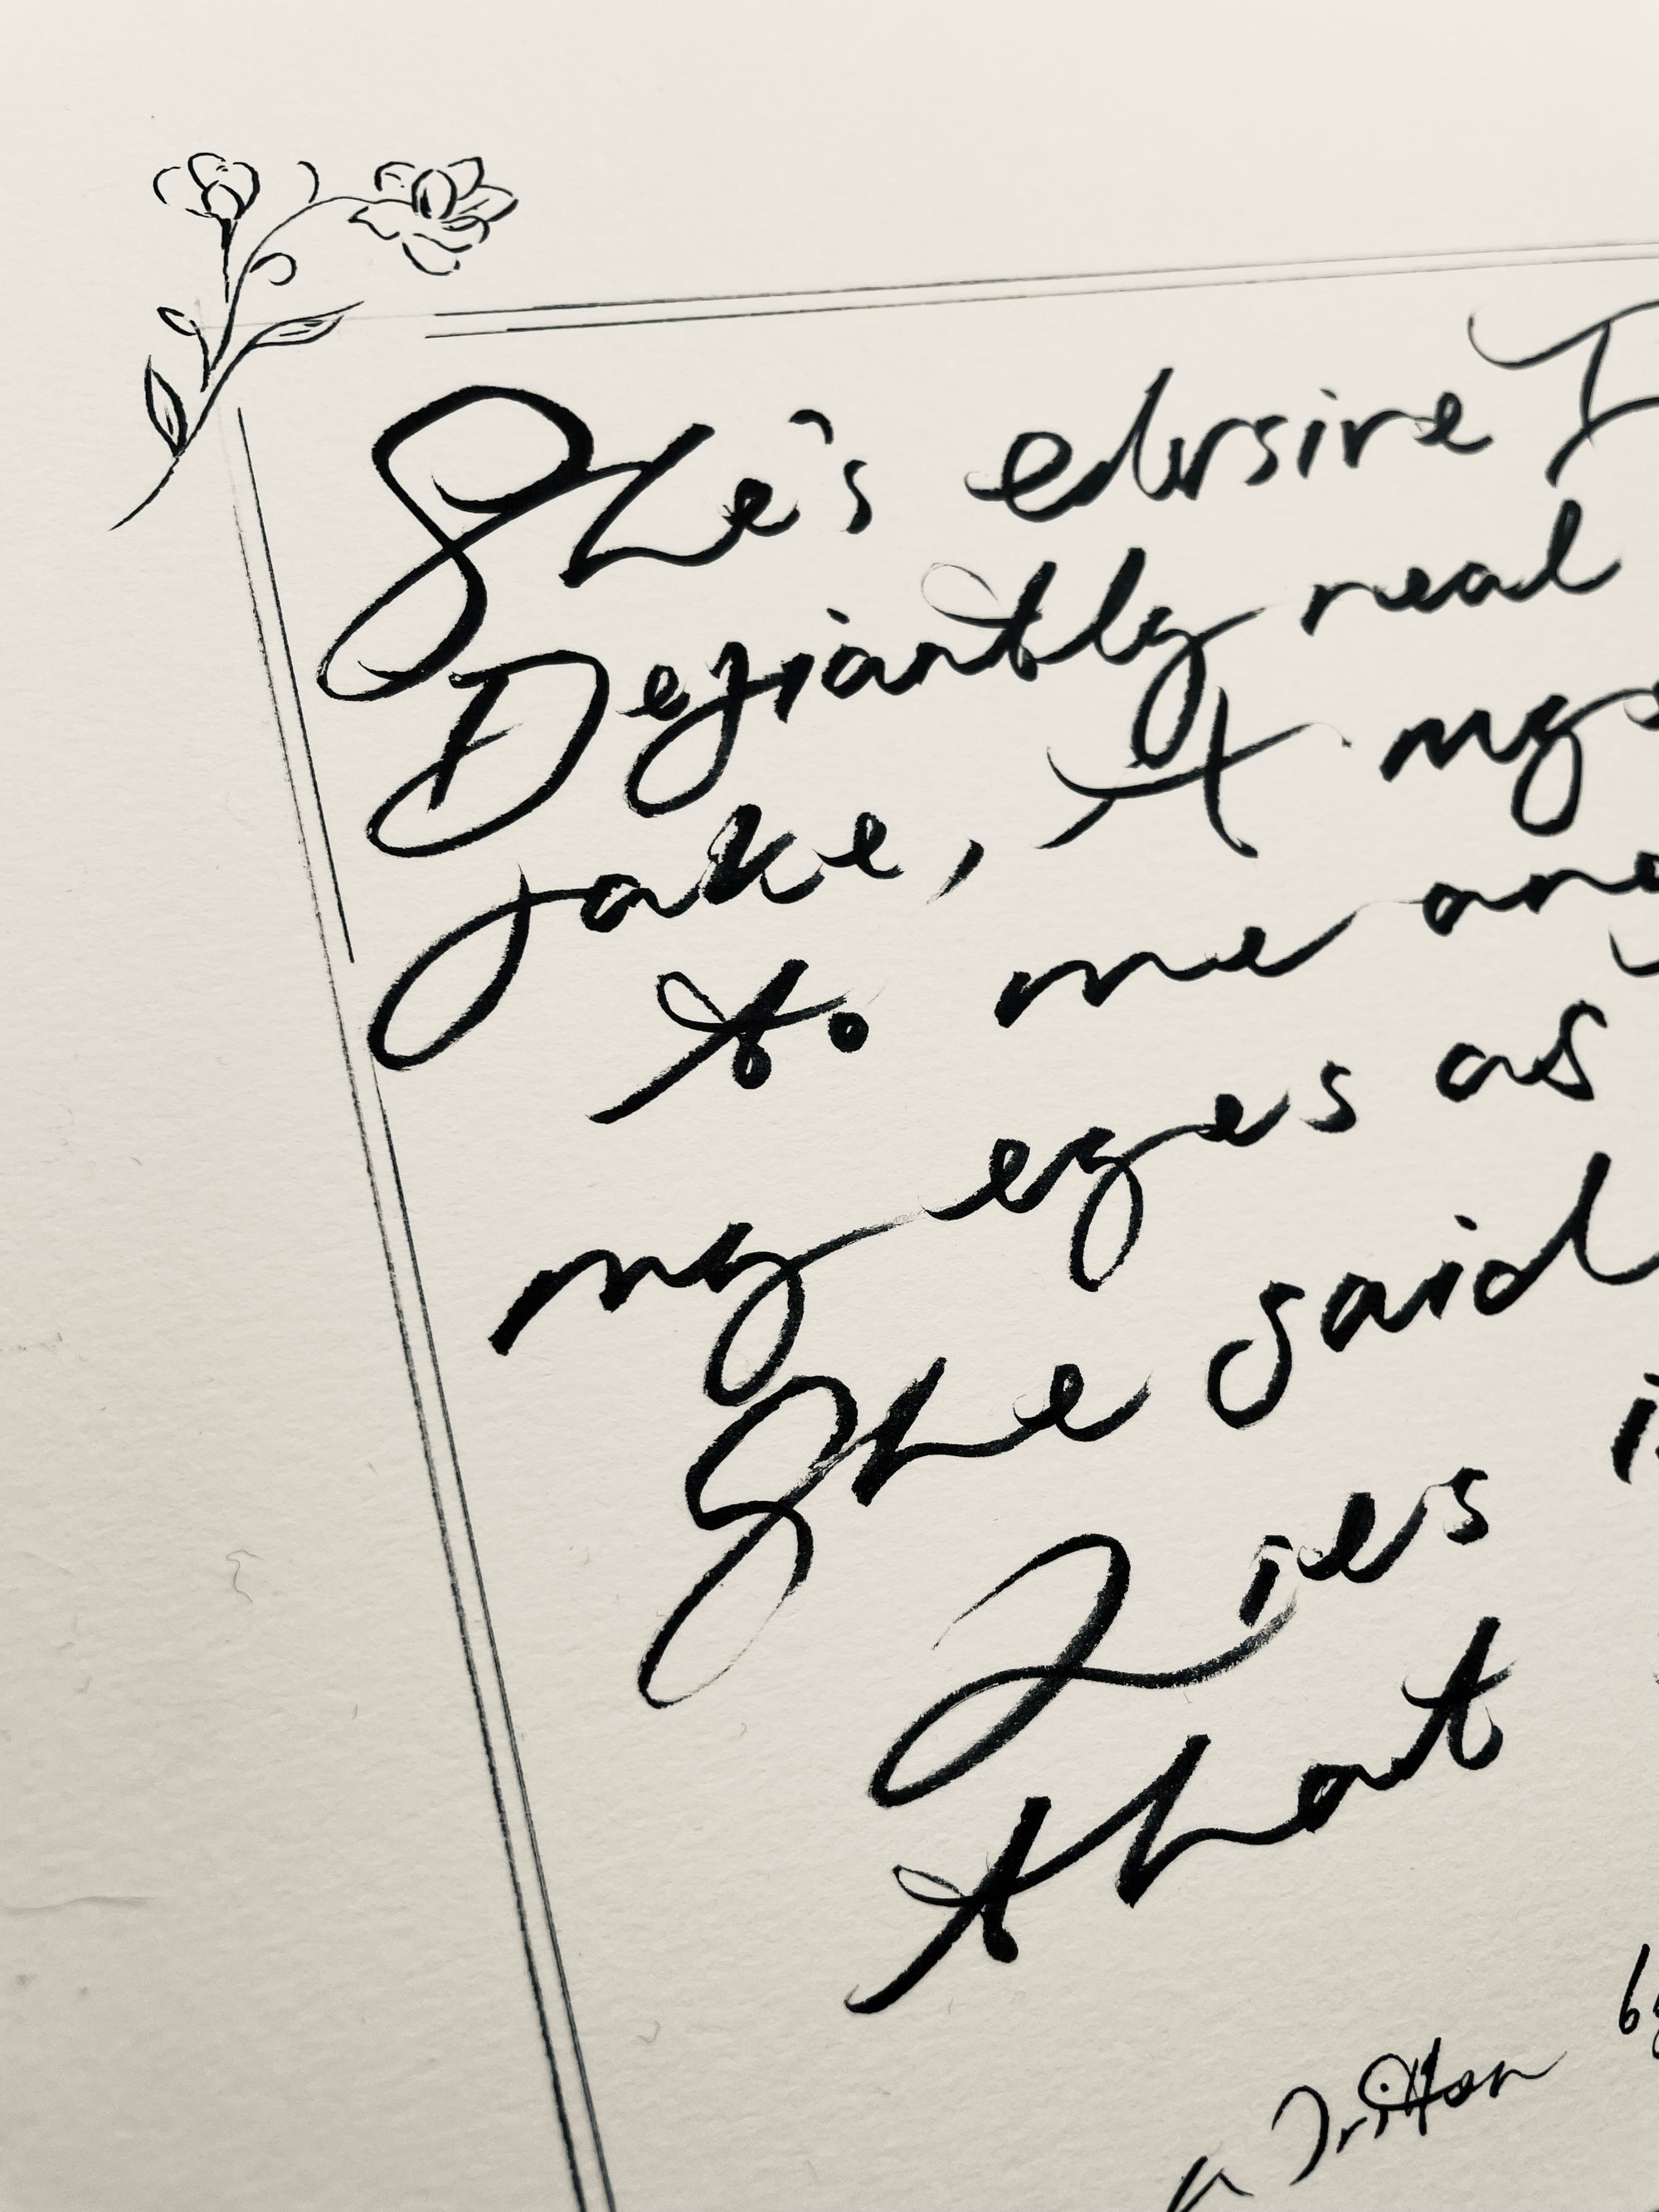 She's elusive I
Defiantly real
Jake, A mys
to me any
my eyes as
She said
Lies i
that
written by